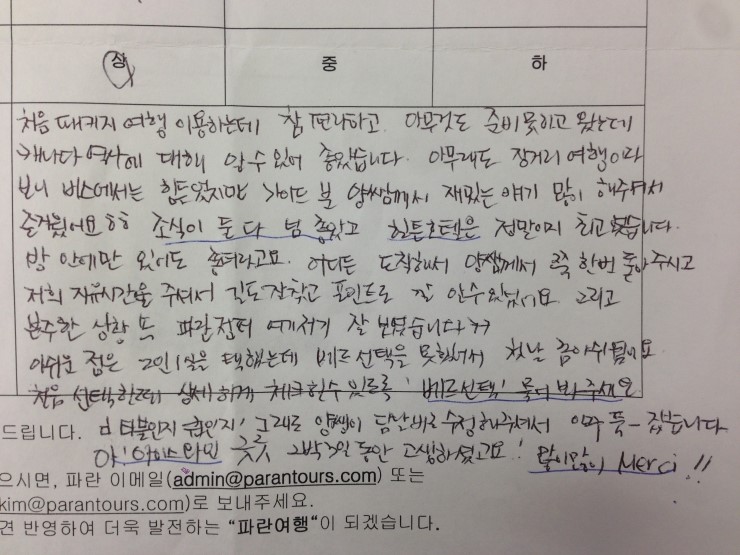 상 중 하
처음 패키지 여행 이용하는데 참 편리하고 아무것도 준비 못하고 왔는데
캐나다 역사에 대해 알 수 있어 좋았습니다. 아무래도 장거리 여행이라
보니 버스에서는 힘들었지만 가이드 분 양쌤께서 재밌는 얘기 많이 해주셔서
즐거웠어요 ㅎㅎ 조식이 둘 다 넘 좋았고 힌튼호텔은 정말이지 최고였습니다.
방 안에만 있어도 좋더라고요. 어디든 도착해서 양쌤께서 쭉 한번 돌아주시고
저희 자유시간을 주셔서 길도 잘찾고 포인트로 갈 수있었네요 그리고
분주한 상황 속 파란점퍼 여기저기 잘 보였습니다 ㅋㅋ
아쉬운 점은 2인1실을 택했는데 베드 선택을 못했어서 첫날 좀 아쉬웠어요
처음 선택할때 상세하게 체크할수 있도록 '베드선택' 물어봐주세요
드립니다. 더블인지 퀸인지! 그래도 양쌤이 담날 바로 수정해주셔서 아주 뜻- 깊습니다
아! 아이스와인 굿굿 2박3일 동안 고생하셨고요! 많이많이 Merci !!
으시면, 파란 이메일(admin@parantours.com) 또는
kim@parantours.com)로 보내주세요.
견 반영하여 더욱 발전하는 “파란여행“이 되겠습니다.